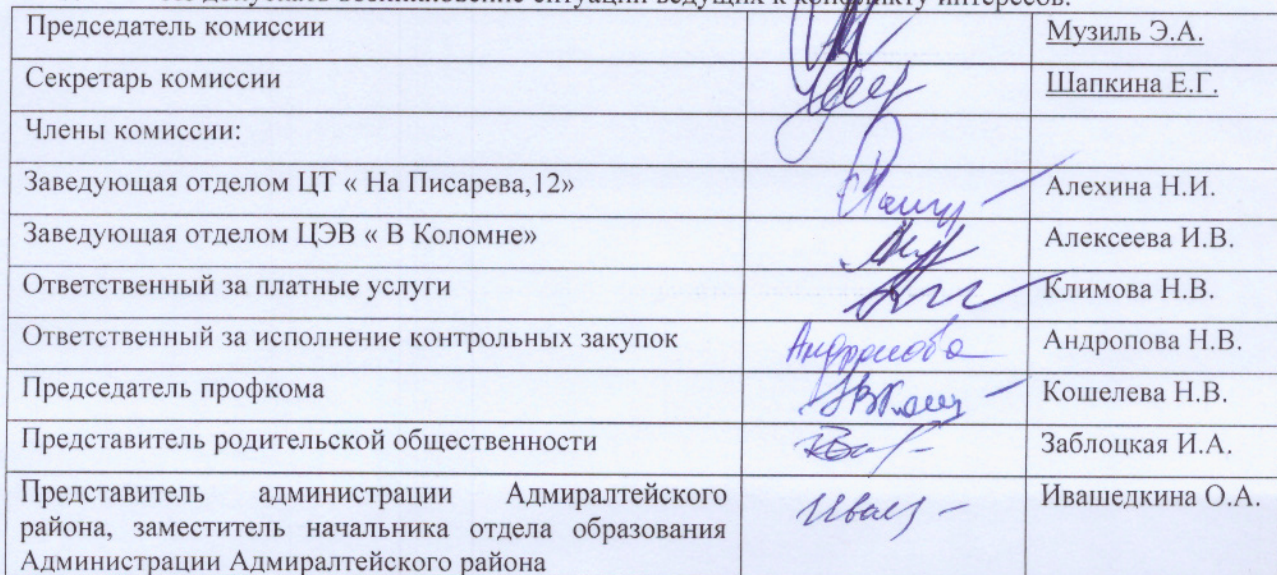 допускать возникновение ситуаций ведущих к конфликту интересов.
Председатель комиссии Музиль Э.А.
Секретарь комиссии Шапкина Е.Г.
Члены комиссии:
Заведующая отделом ЦТ « На Писарева,12» Алехина Н.И.
Заведующая отделом ЦЭВ « В Коломне» Алексеева И.В.
Ответственный за платные услуги Климова Н.В.
Ответственный за исполнение контрольных закупок Андропова Андропова Н.В.
Председатель профкома Кошелева Н.В.
Представитель родительской общественности Заблоцкая И.А.
Представитель администрации Адмиралтейского Ивашедкина О.А.
района, заместитель начальника отдела образования
Администрации Адмиралтейского района